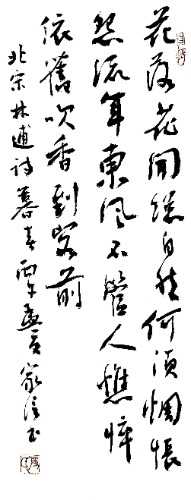 花落花開總自然何須惆悵
怨流年東風不管人憔悴
依舊吹香到窗前
北宋林逋詩暮春丙午 家 书